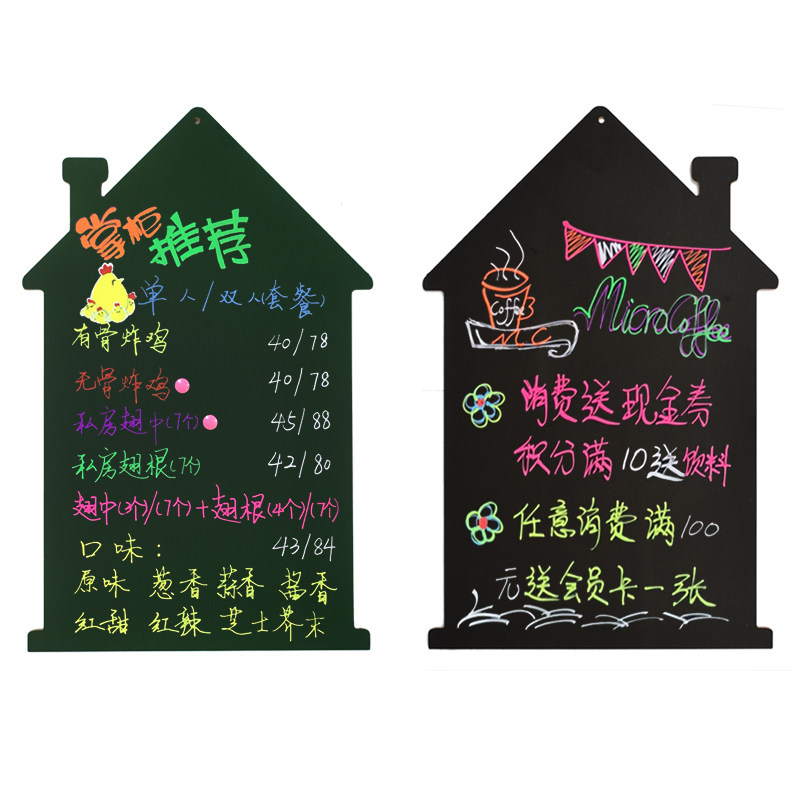 掌柜推荐
单人/双人(套餐)
有骨炸鸡 40/78
无骨炸鸡 40/78
私房翅中(7个) 45/88
私房翅根(7个) 42/80
翅中(3个)/(7个)+翅根(4个)/(7个)
口味: 43/84
原味 葱香 蒜香 酱香
红甜 红辣 芝士芥末
Coffe
MC
MicroCoffee
消费送现金券
积分满10送饮料
任意消费满100
元送会员卡一张